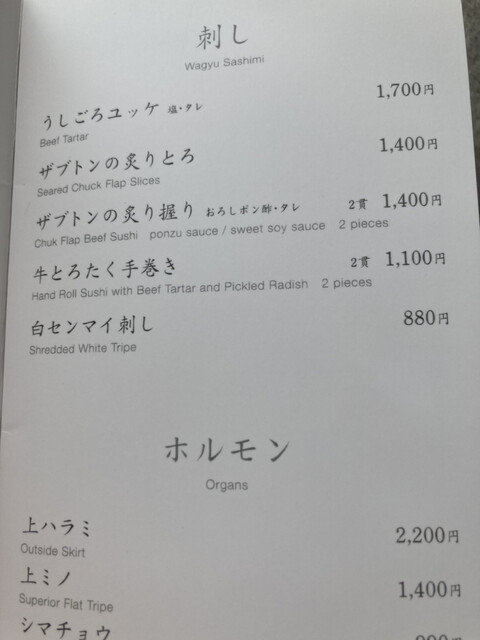 刺し
Wagyu Sashimi
うしごろユッケ 塩・タレ 1,700円
Beef Tartar
ザブトンの炙りとろ 1,400円
Seared Chuck Flap Slices
ザブトンの炙り握り おろしポン酢・タレ 2貫 1,400円
Chuk Flap Beef Sushi ponzu sauce / sweet soy sauce 2 pieces
牛とろたく手巻き 2貫 1,100円
Hand Roll Sushi with Beef Tartar and Pickled Radish 2 pieces
白センマイ刺し 880円
Shredded White Tripe
ホルモン
Organs
上ハラミ 2,200円
Outside Skirt
上ミノ 1,400円
Superior Flat Tripe
シマチョウ